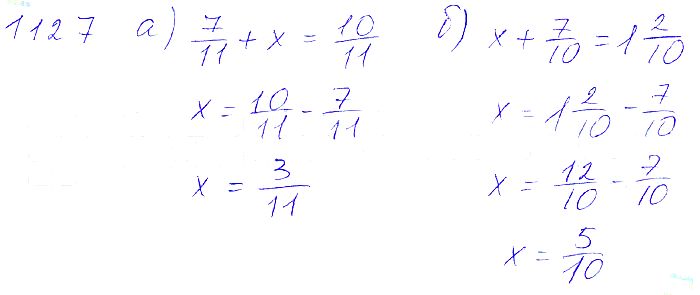 1127 а) 7/11 + x = 10/11
x = 10/11 - 7/11
x = 3/11
б) x + 7/10 = 1 2/10
x = 1 2/10 - 7/10
x = 12/10 - 7/10
x = 5/10